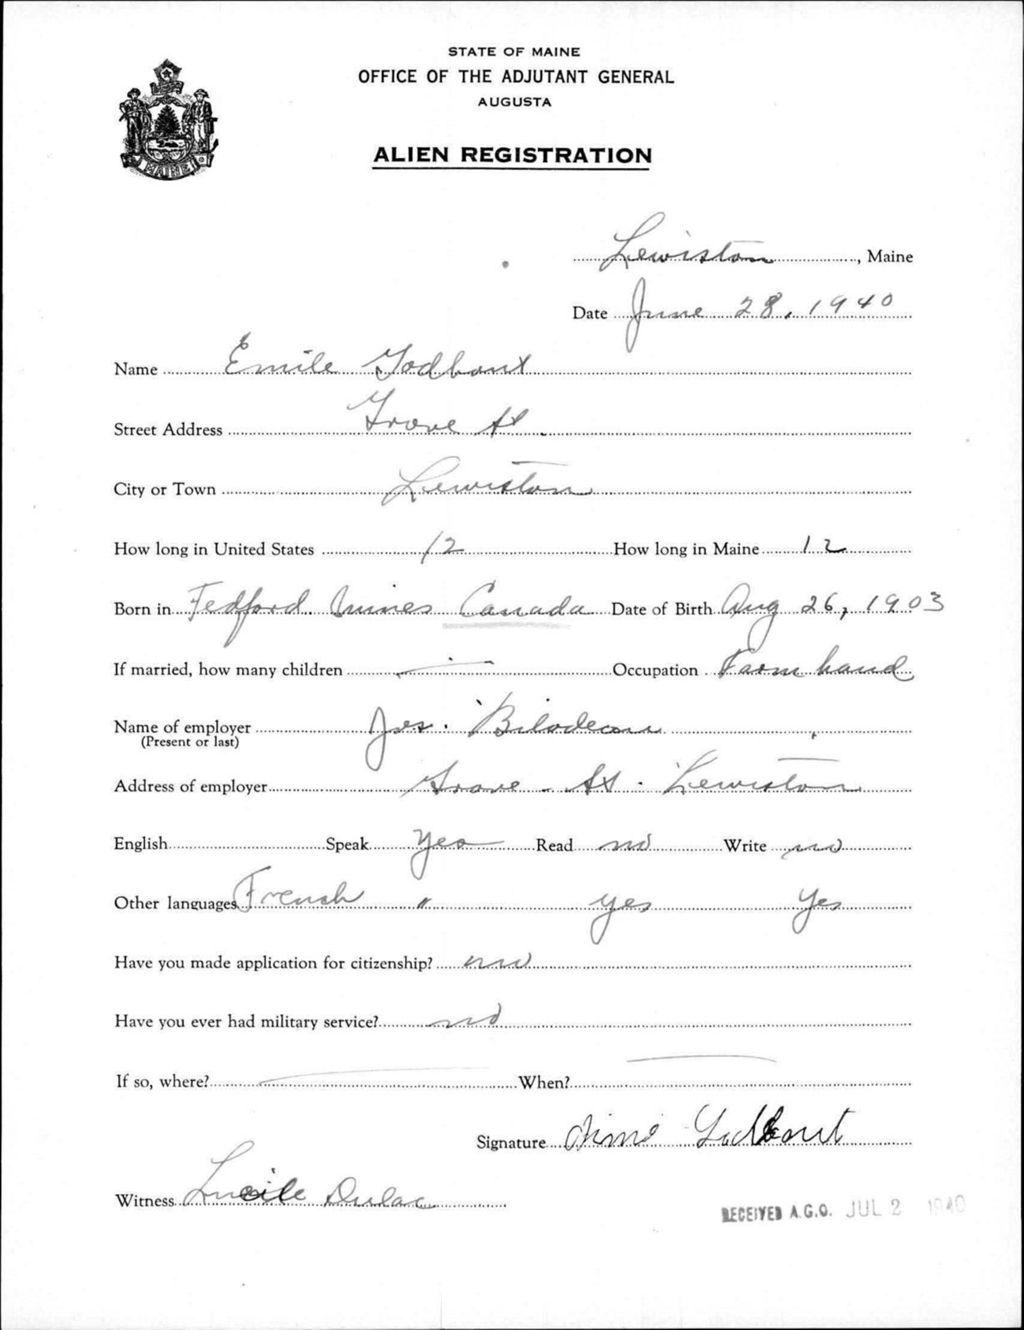 STATE OF MAINE
OFFICE OF THE ADJUTANT GENERAL
AUGUSTA
ALIEN REGISTRATION
MAINE
Lewiston, Maine
Date June 28, 1940
Name Emile Godbout
Street Address Grove St.
City or Town Lewiston
How long in United States 12 How long in Maine 12
Born in Fedford Mines Canada Date of Birth Aug 26, 1903
If married, how many children — Occupation Farm hand
Name of employer Jos. Bilodeau
(Present or last)
Address of employer Grove St. Lewiston
English Speak Yes Read no Write no
Other languages French " yes Yes
Have you made application for citizenship? no
Have you ever had military service? no
If so, where? — When? —
Signature Aimé Godbout
Witness Lucile Dulac
RECEIVED A.G.O. JUL 2 1940